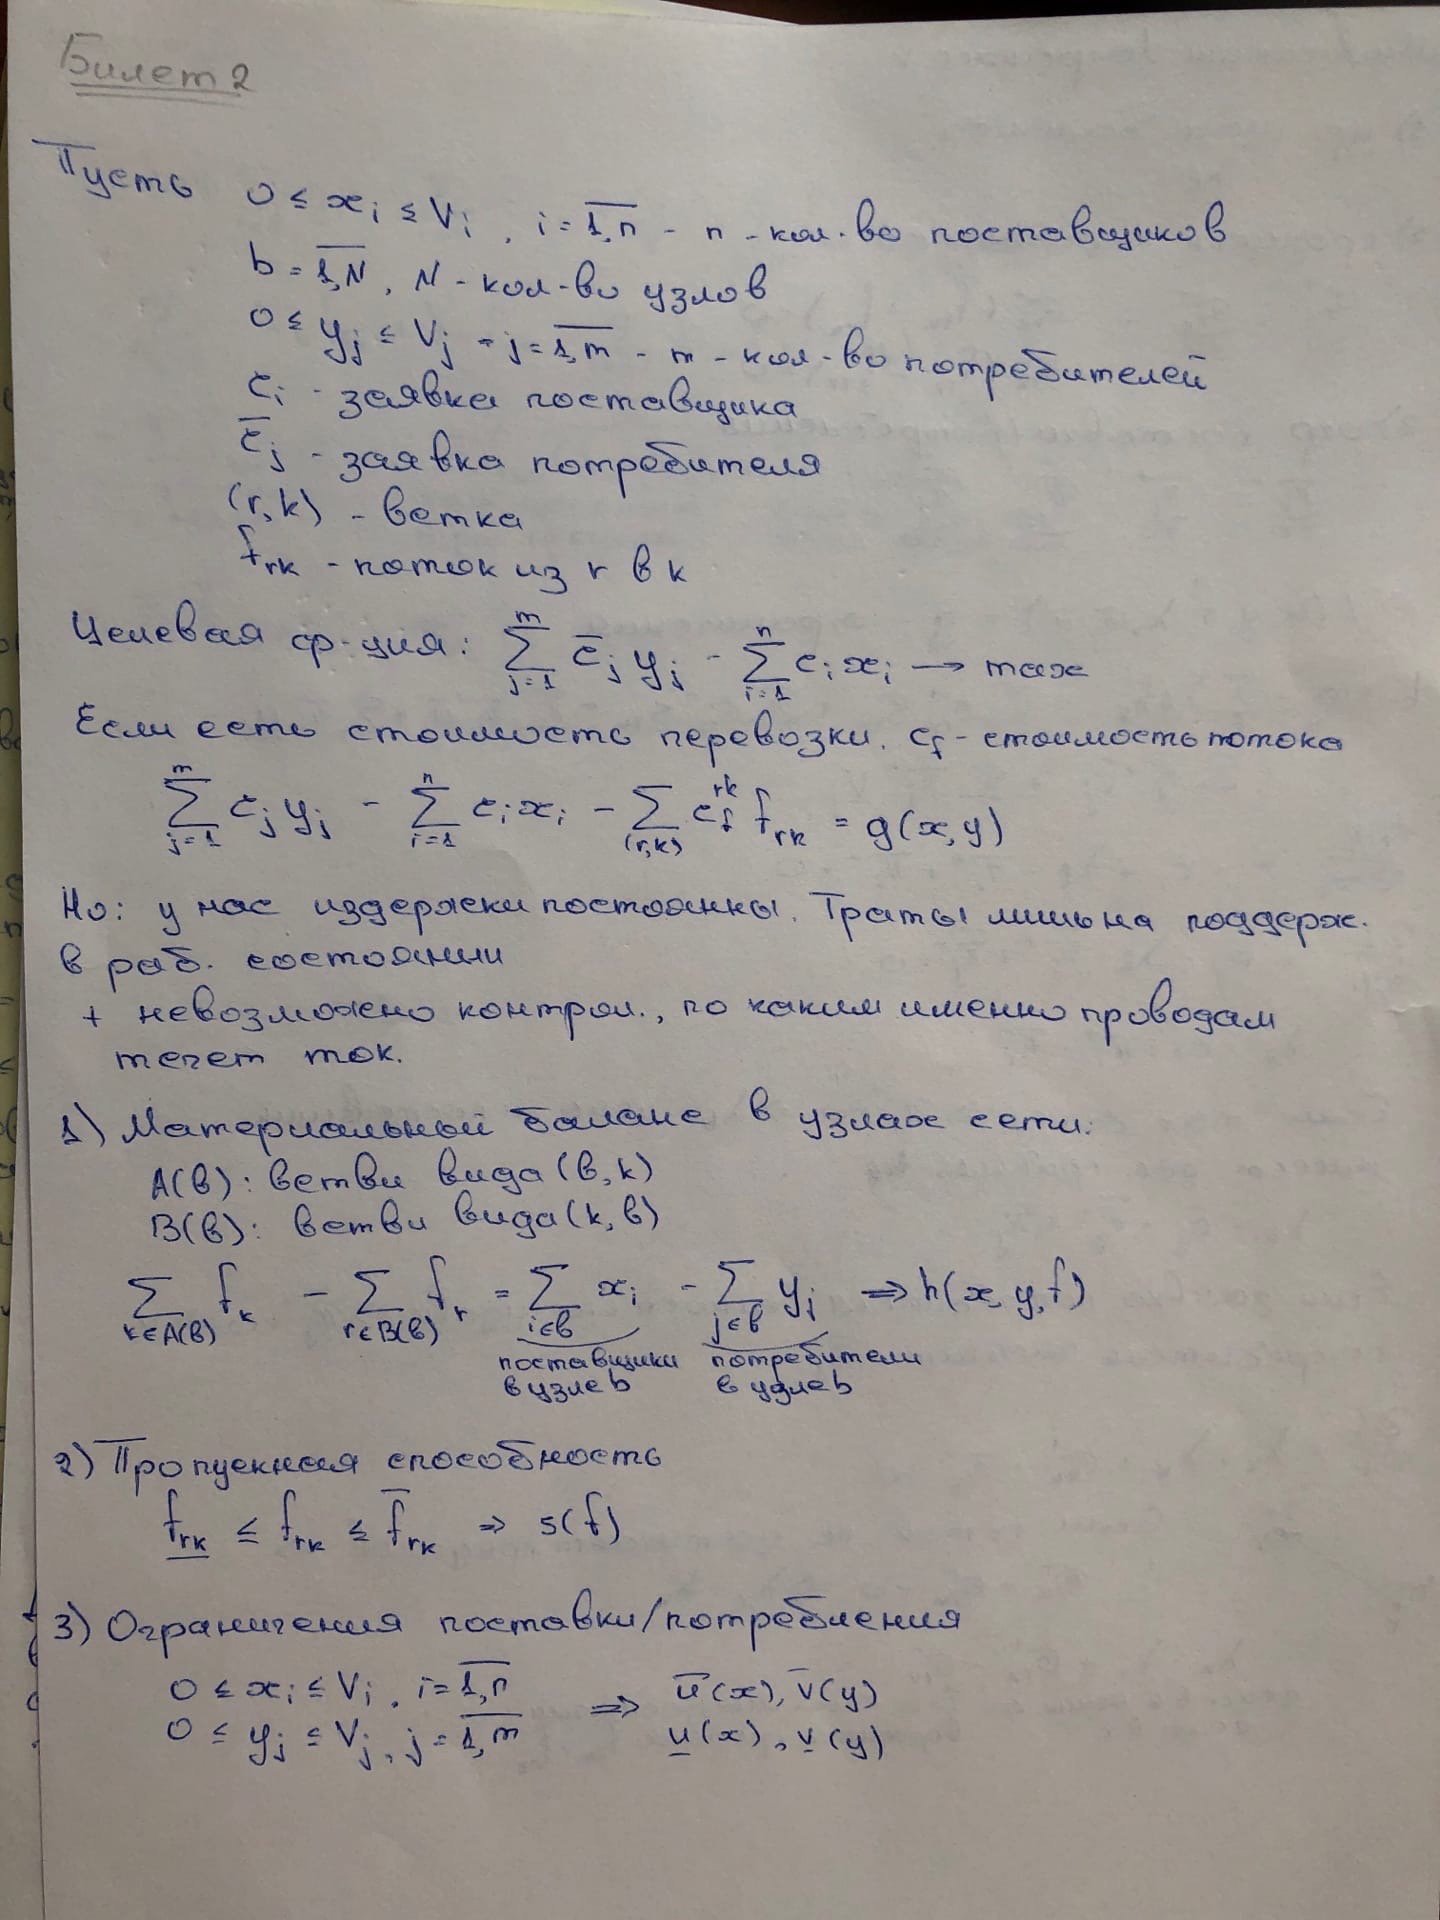 Билет 2
Пусть 0 ≤ xᵢ ≤ Vᵢ, i = 1,n - n - кол-во поставщиков
b = 1,N, N - кол-во узлов
0 ≤ yⱼ ≤ Vⱼ - j = 1,m - m - кол-во потребителей
cᵢ - заявка поставщика
c̄ⱼ - заявка потребителя
(r,k) - ветка
f_rk - поток из r в k
Целевая ф-ция: ∑_{j=1}^{m} c̄ⱼ yⱼ - ∑_{i=1}^{n} cᵢ xᵢ → max
Если есть стоимость перевозки. c_f - стоимость потока
∑_{j=1}^{m} cⱼ yⱼ - ∑_{i=1}^{n} cᵢ xᵢ - ∑_{(r,k)} c_f^{rk} f_rk = g(x,y)
Но: у нас издержки постоянны. Траты лишь на поддерж.
в раб. состоянии
+ невозможно контрол., по каким именно проводам
течет ток.
1) Материальный баланс в узлах сети:
A(в): ветви вида (в,k)
B(в): ветви вида (k,в)
∑_{k∈A(в)} f_k - ∑_{r∈B(в)} f_r = ∑_{i∈в} xᵢ - ∑_{j∈в} yⱼ ⇒ h(x,y,f)
поставщики потребители
в узле b в узле b
2) Пропускная способность
f̲_rk ≤ f_rk ≤ f̄_rk ⇒ s(f)
3) Ограничения поставки/потребления
0 ≤ xᵢ ≤ Vᵢ, i = 1,n ⇒ ū(x), v̄(y)
0 ≤ yⱼ ≤ Vⱼ, j = 1,m u̲(x), v̲(y)